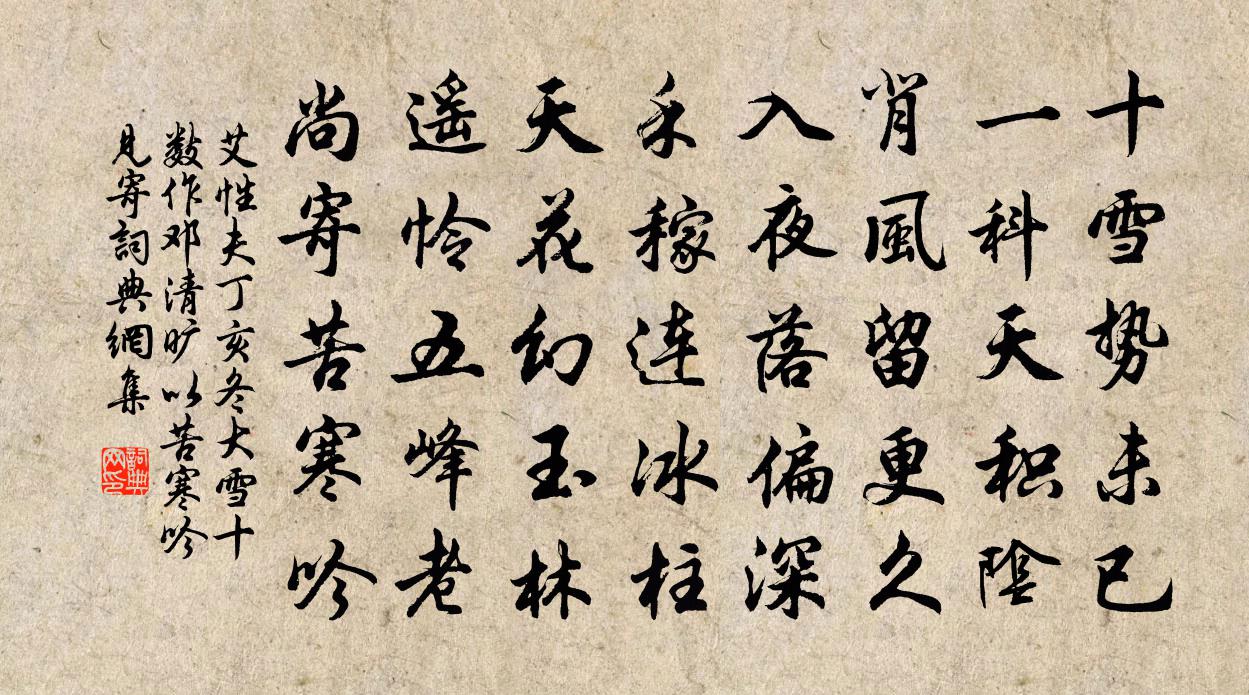 十雪势未已
一科天积陰
肖風留更久
入夜落偏深
禾稼连冰柱
天花幻玉林
遥怜五峰老
尚寄苦寒吟
艾性夫丁亥冬大雪十
数作邓清旷以苦寒吟
见寄詞典網集
詞典
网印